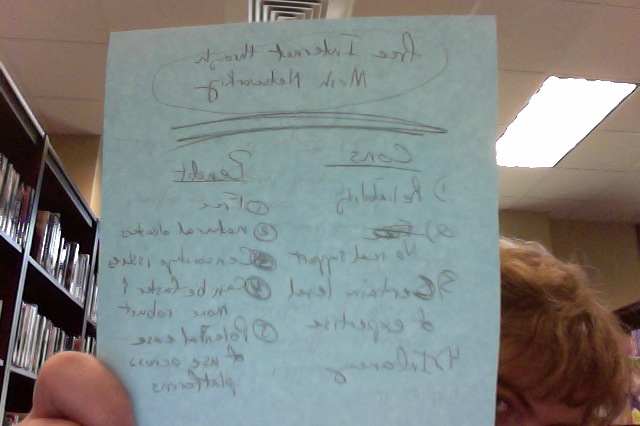 free Internet through
Mesh Networking
Cons
1) Reliability
2)
No real support
3) Certain level
of expertise
4)
Benefit
① Free
② natural
③ Censorship issues
④ Can be faster &
More robust
⑤ Potential ease
of use across
platforms